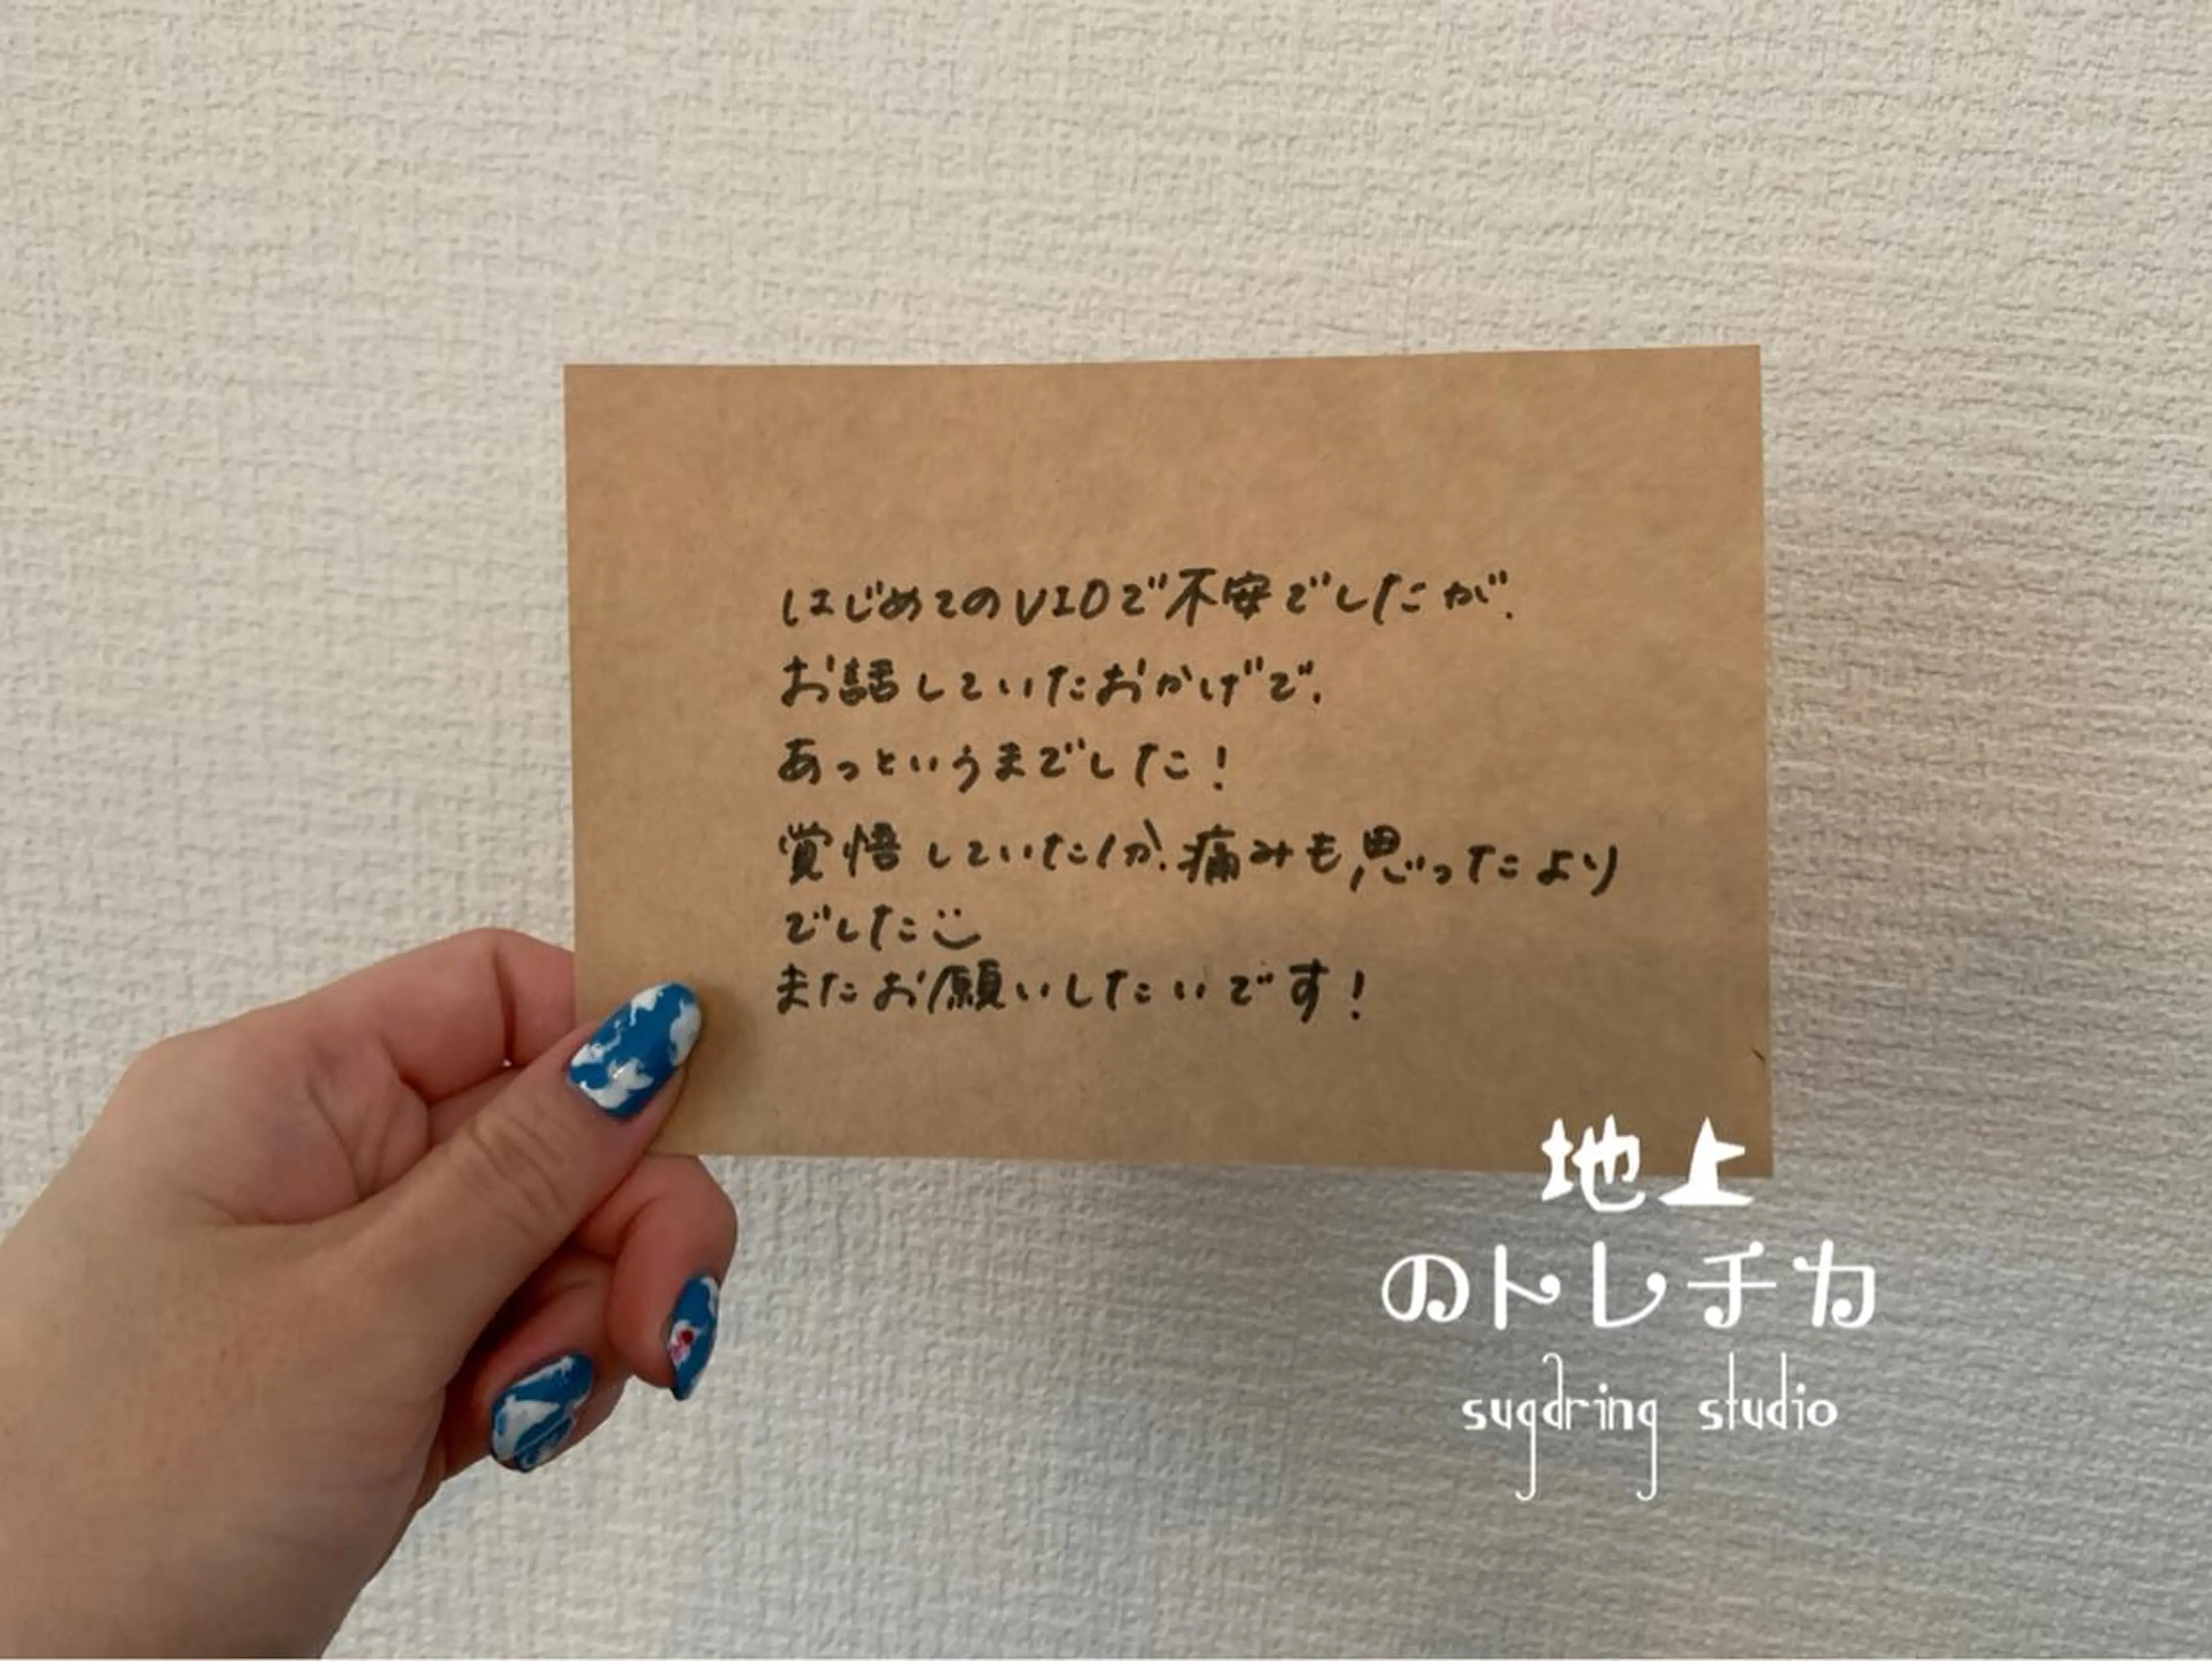 はじめてのVIOで不安でしたが、
お話していたおかげで、
あっというまでした!
覚悟していたが、痛みも思ったより
でした
またお願いしたいです!
地上
のトレチカ
sugdring studio